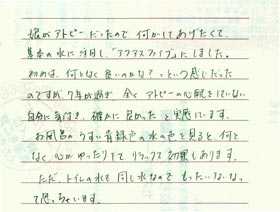 娘がアトピーだったので何かしてあげたくて、
基本の水に注目し、「アクアスファイブ」にしました。
初めは、何となく良いのかな?っという感じだった
のですが、7年が過ぎ、全くアトピーの心配をしていない
自分に気付き、確かに良かったと実感しています。
お風呂のうすい青緑色の水の色を見ると、何と
なく、心がゆったりして リラックス効果もあります。
ただ、トイレの水も同じ水なので もったいないなって
思っちゃいます。